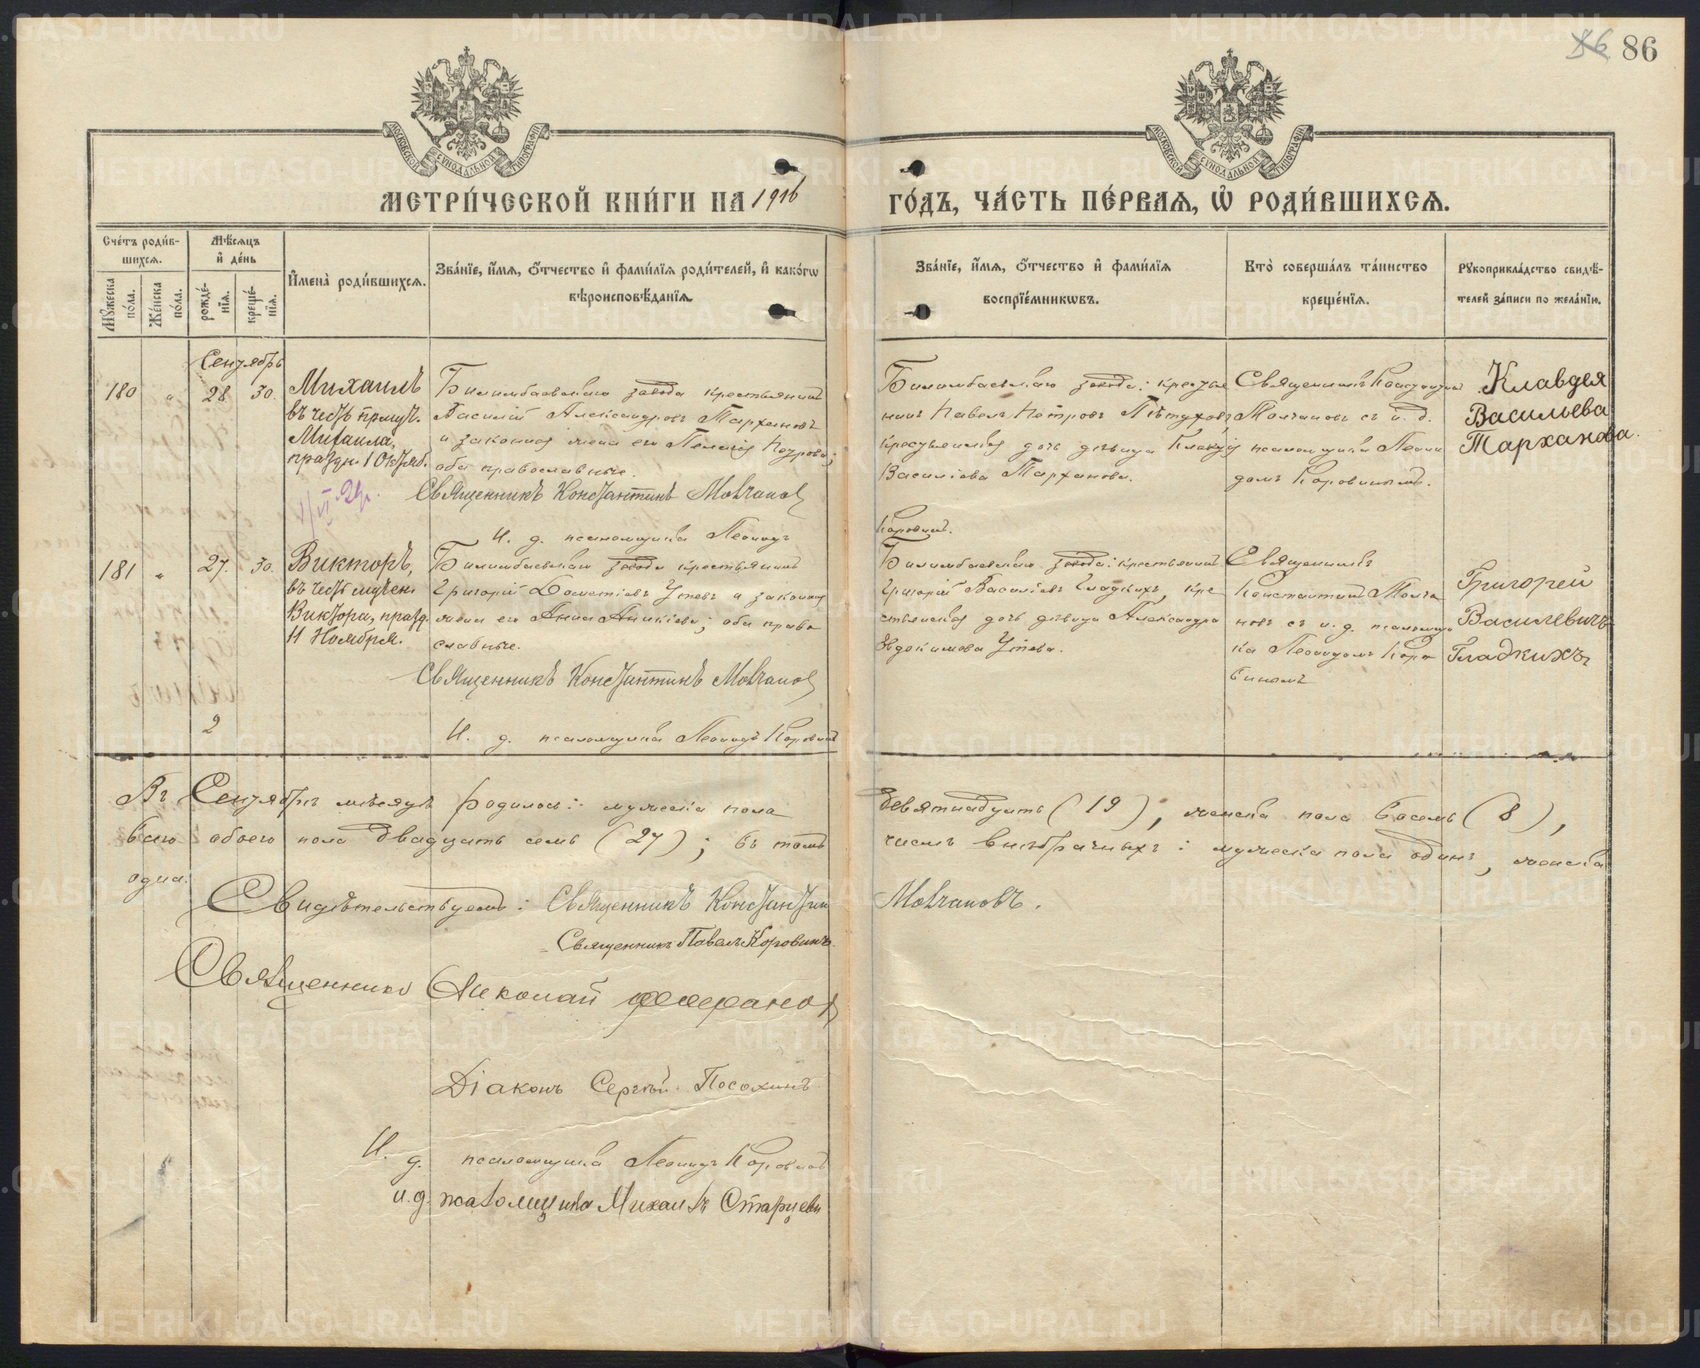 86
МЕТРИ́ЧЕСКОЙ КНИ́ГИ НА 1916 ГО́ДЪ, ЧА́СТЬ ПЕ́РВАЯ, Ѡ҆ РОДИ́ВШИХСѦ.
Сче́тъ роди́в-
шихсѧ.
Мꙋжеска по́ла.
Же́нска по́ла.
Мѣ́сѧцъ
и҆ де́нь
рожде́-
нїѧ.
креще́-
нїѧ.
И҆мена̀ роди́вшихсѧ.
Зва́нїе, и҆́мѧ, ѻ҆́тчество и҆ фами́лїѧ роди́телей, и҆ како́гѡ
вѣроисповѣ́данїѧ.
Зва́нїе, и҆́мѧ, ѻ҆́тчество и҆ фами́лїѧ
воспрїе́мникѡвъ.
Кто̀ соверша́лъ та́инство
креще́нїѧ.
Рꙋкоприкла́дство свидѣ́-
телей за́писи по жела́нїю.
Сентябрь
180 " 28 30.
Михаилъ
въ честь прмуч.
Михаила,
праздн. 1 Октяб.
Билимбаевскаго завода крестьянинъ
Василій Александровъ Тархановъ
и законная жена его Пелагія Петрова;
оба православные.
Священникъ Константинъ Молчановъ
И. д. псаломщика Леонидъ
Коровинъ.
Билимбаевскаго завода: крестья
нинъ Павелъ Петровъ Пѣтуховъ,
крестьянская дочь дѣвица Клавдія
Василіева Тарханова.
Священникъ Константинъ
Молчановъ съ и. д.
псаломщика Леони
домъ Коровинымъ.
Клавдея
Васильева
Тарханова.
181 " 27. 30.
Викторъ,
въ честь мучен.
Виктора, празд.
11 Ноября.
Билимбаевскаго завода крестьянинъ
Григорій Дометіевъ Утевъ и законная
жена его Анна Аникіева; оба право
славные.
Священникъ Константинъ Молчановъ
И. д. псаломщика Леонидъ Коровинъ
2
Билимбаевскаго завода: крестьянинъ
Григорій Василіевъ Гладкихъ, кре
стьянская дочь дѣвица Александра
Евдокимова Утева.
Священникъ
Константинъ Молча
новъ съ и. д. псаломщи
ка Леонидомъ Коро
винымъ
Григорей
Василевичъ
Гладкихъ
Въ Сентябрѣ мѣсяцѣ родилось: мужеска пола девятнадцать (19), женска пола восемь (8),
всего обоего пола двадцать семь (27); въ томъ числѣ внѣбрачныхъ: мужеска пола одинъ, женска
одна.
Свидѣтельствуемъ: Священникъ Константинъ Молчановъ.
Священникъ Павелъ Коровинъ
Священникъ Николай
Діаконъ Сергѣй Посохинъ
И. д. псаломщика Леонидъ Коровинъ
и. д. псаломщика Михаилъ Старцевъ